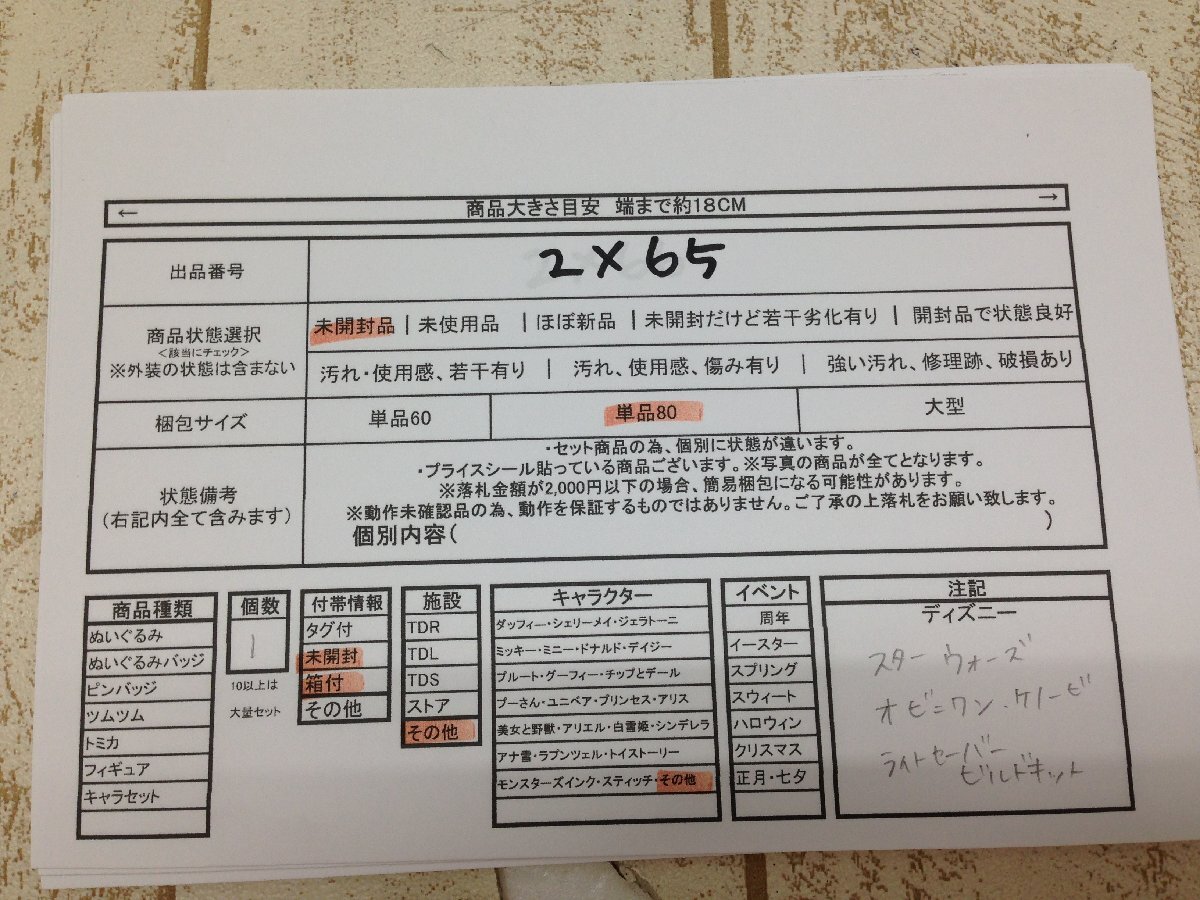 ← 商品大きさ目安 端まで約18CM →
出品番号 2X65
商品状態選択
<該当にチェック>
※外装の状態は含まない
未開封品 | 未使用品 | ほぼ新品 | 未開封だけど若干劣化有り | 開封品で状態良好
汚れ・使用感、若干有り | 汚れ、使用感、傷み有り | 強い汚れ、修理跡、破損あり
梱包サイズ 単品60 単品80 大型
状態備考
(右記内全て含みます)
・セット商品の為、個別に状態が違います。
・プライスシール貼っている商品ございます。※写真の商品が全てとなります。
※落札金額が2,000円以下の場合、簡易梱包になる可能性があります。
※動作未確認品の為、動作を保証するものではありません。ご了承の上落札をお願い致します。
個別内容( )
商品種類
ぬいぐるみ
ぬいぐるみバッジ
ピンバッジ
ツムツム
トミカ
フィギュア
キャラセット
個数
1
10以上は
大量セット
付帯情報
タグ付
未開封
箱付
その他
施設
TDR
TDL
TDS
ストア
その他
キャラクター
ダッフィー・シェリーメイ・ジェラトーニ
ミッキー・ミニー・ドナルド・デイジー
プルート・グーフィー・チップとデール
プーさん・ユニベア・プリンセス・アリス
美女と野獣・アリエル・白雪姫・シンデレラ
アナ雪・ラプンツェル・トイストーリー
モンスターズインク・スティッチ・その他
イベント
周年
イースター
スプリング
スウィート
ハロウィン
クリスマス
正月・七夕
注記
ディズニー
スターウォーズ
オビ=ワン・ケノービ
ライトセーバー
ビルドキット